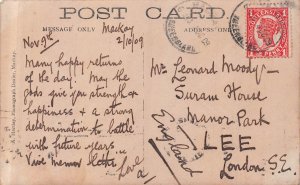 POST CARD
MESSAGE ONLY
ADDRESS ONLY
Mackay
Nov 9th 2/10/09
Many happy returns
of the day! May the
gods give you strength &
happiness & a strong
determination to battle
with future years
Love
Mr Leonard Moody
Suram House
Manor Park
LEE
London. S.E.